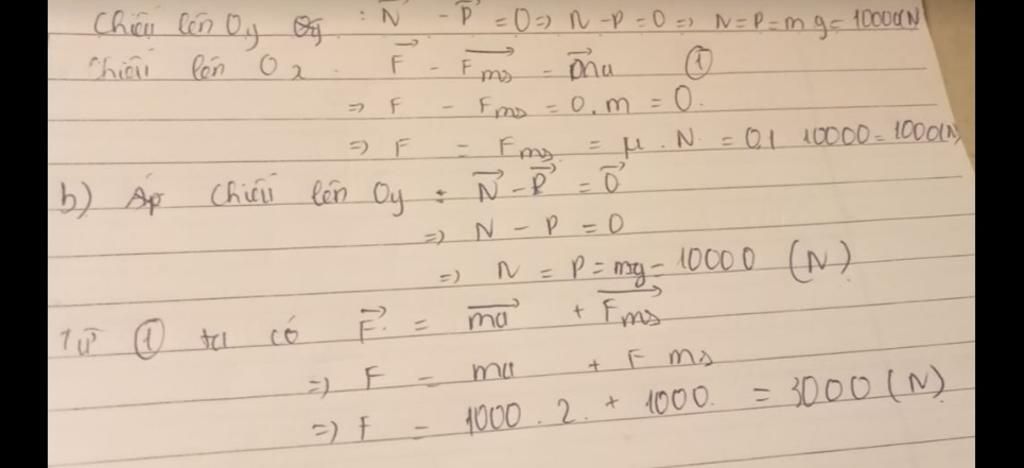 Chiếu lên Oy : N⃗ - P⃗ = 0 => N - P = 0 => N = P = mg = 10000(N)
Chiếu lên Ox . F⃗ - F⃗ms = m⃗a ①
=> F - Fms = 0.m = 0.
=> F = Fms = μ . N. = 0,1 10000 = 1000(N)
b) Áp chiếu lên Oy : N⃗ - P⃗ = 0⃗
=> N - P = 0
=> N = P = mg = 10000 (N)
Từ ① ta có F⃗ = ma⃗ + F⃗ms
=> F = ma + F ms
=> F = 1000 . 2 . + 1000. = 3000 (N)